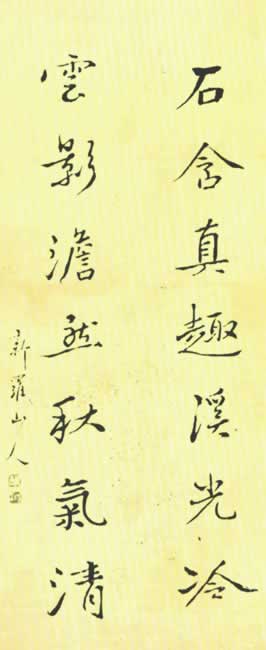 石含真趣溪光冷
雲影澹然秋氣清
新羅山人